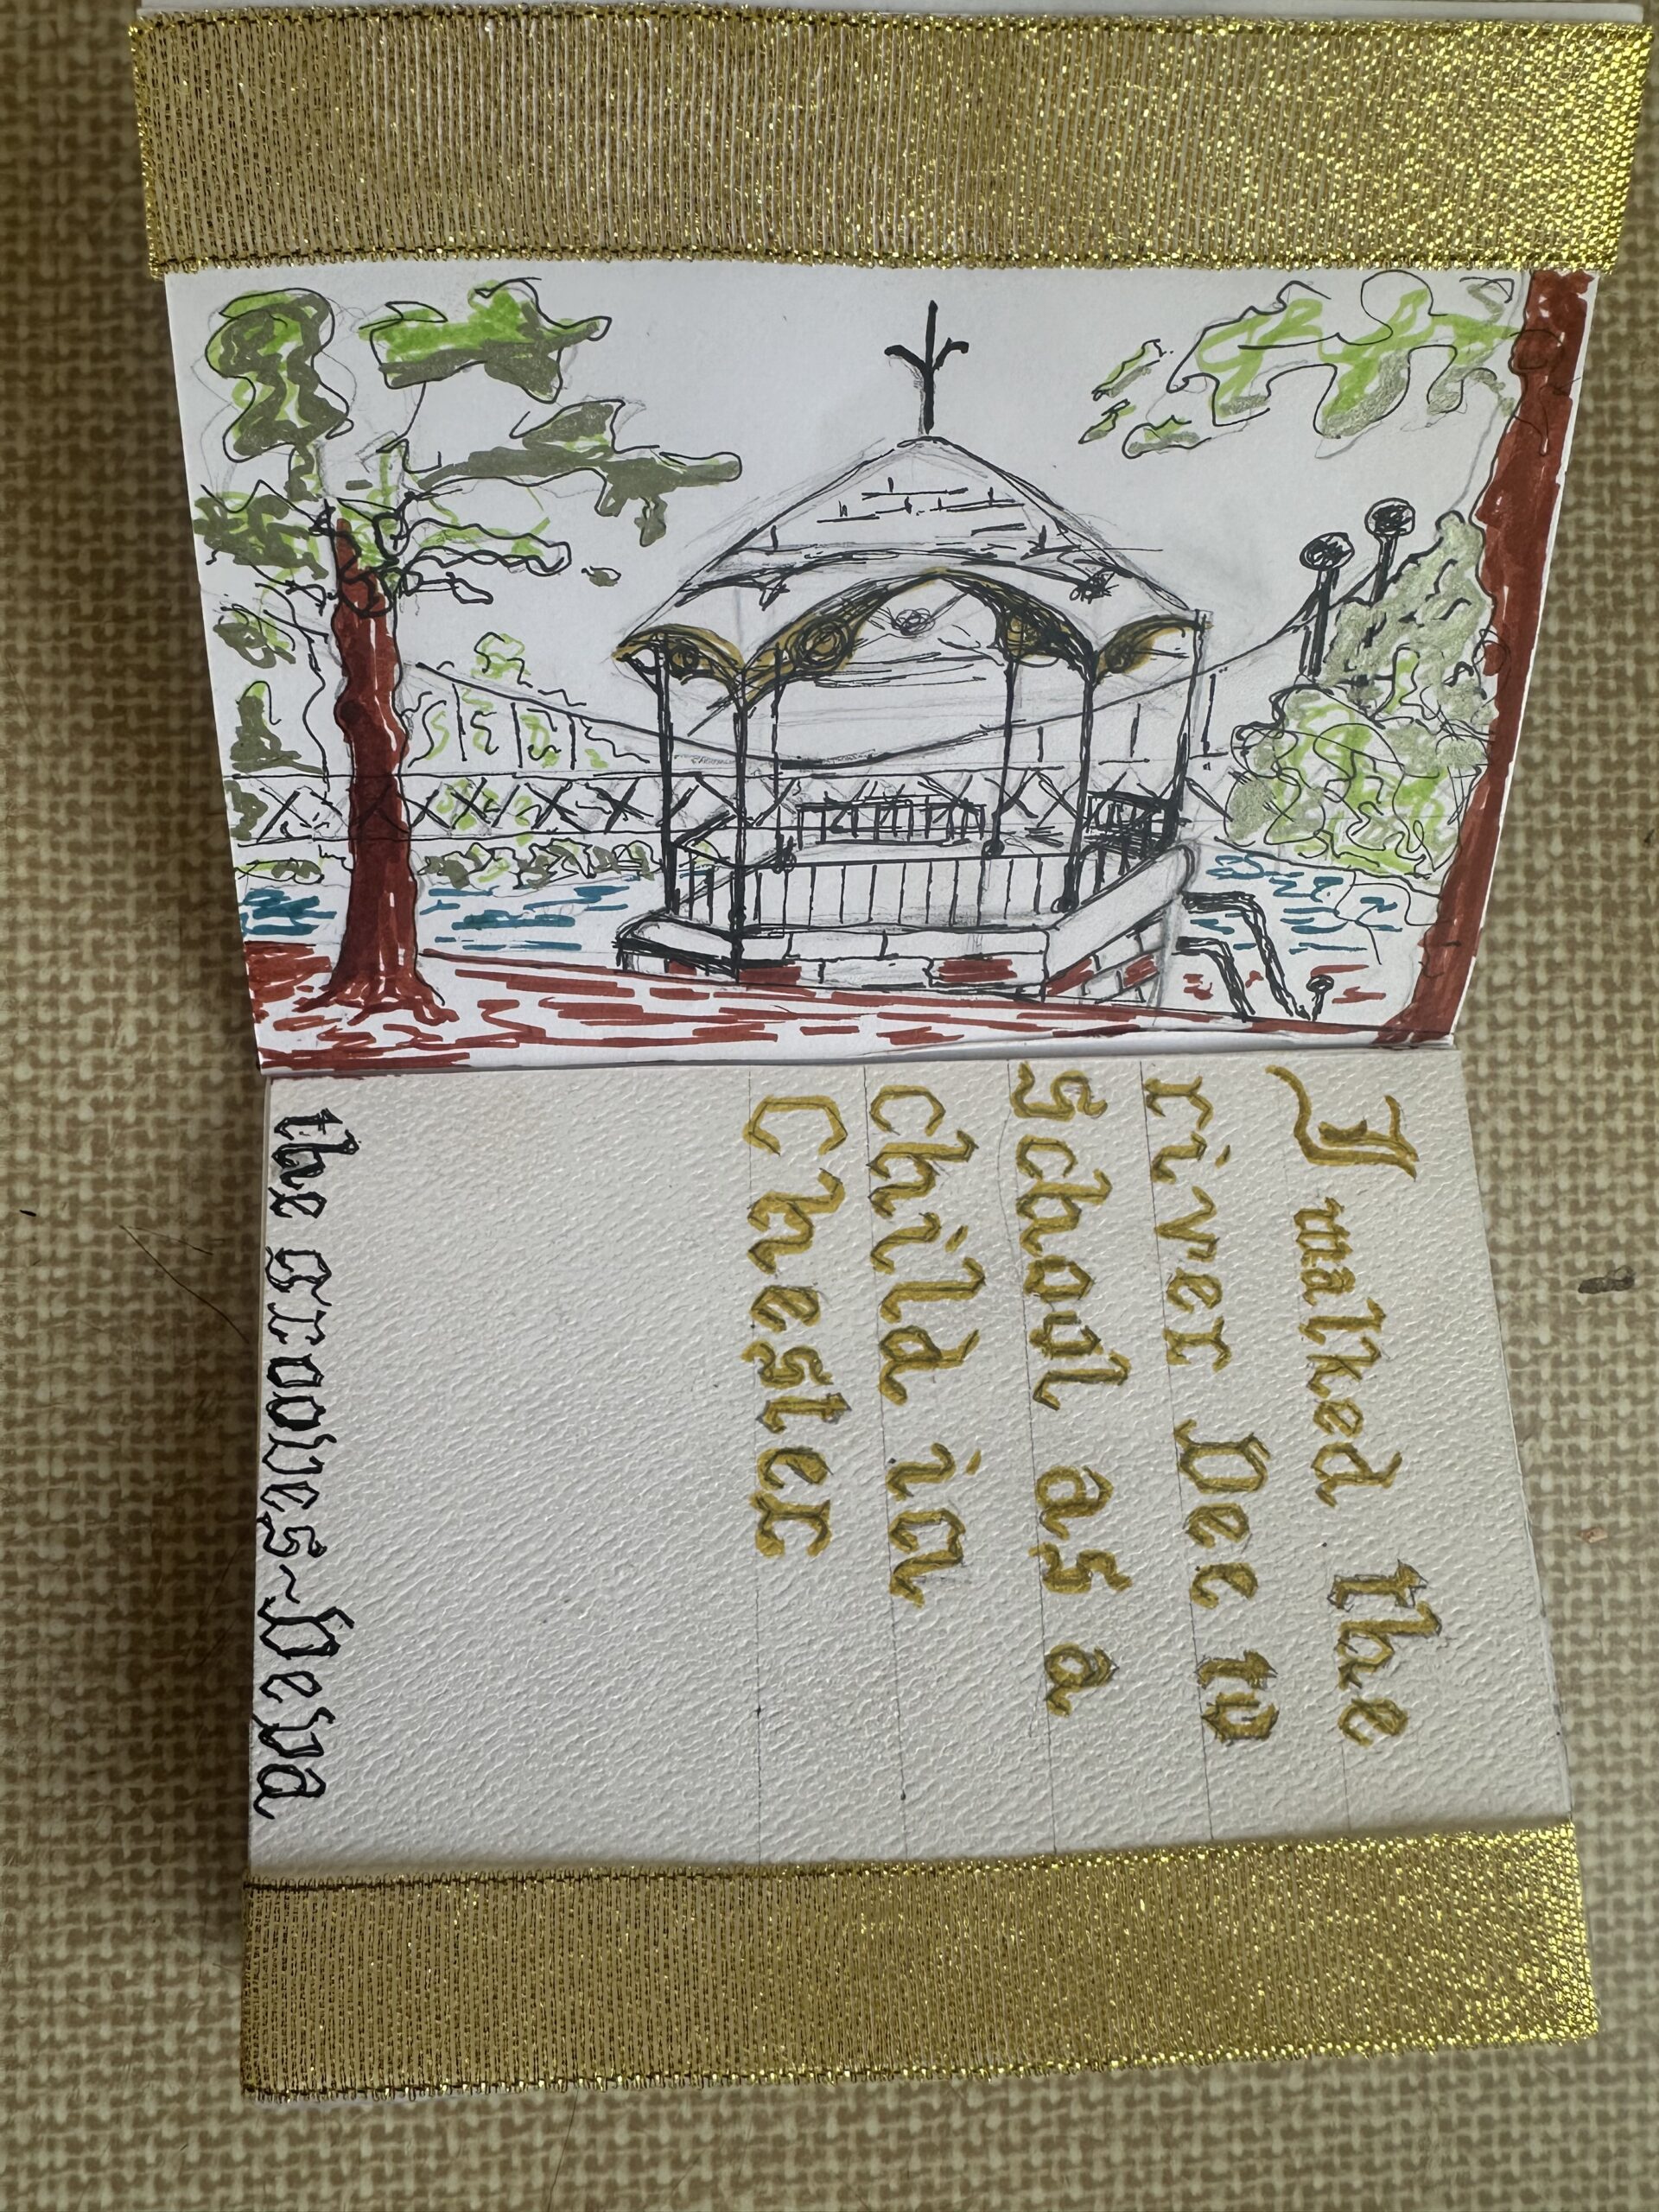 I walked the
river Dee to
School as a
child in
Chester
the groves~Deva